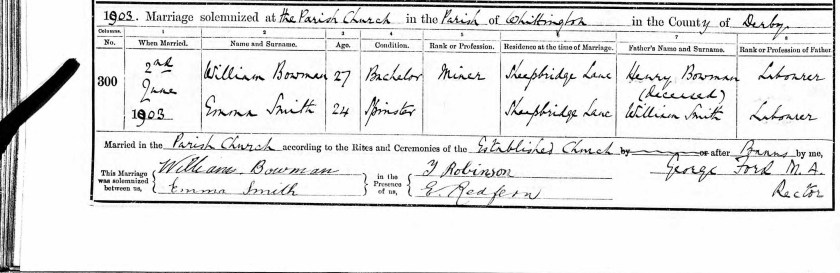 1903. Marriage solemnized at the Parish Church in the Parish of Whittington in the County of Derby
Columns. 1 2 3 4 5 6 7 8
No. When Married. Name and Surname. Age. Condition. Rank or Profession. Residence at the time of Marriage. Father's Name and Surname. Rank or Profession of Father.
300 2nd June 1903 William Bowman 27 Bachelor Miner Sheepbridge Lane Henry Bowman (deceased) Labourer
Emma Smith 24 Spinster Sheepbridge Lane William Smith Labourer
Married in the Parish Church according to the Rites and Ceremonies of the Established Church by or after Banns by me,
This Marriage was solemnized between us, William Bowman Emma Smith in the Presence of us, T Robinson E. Redfern George Ford M.A. Rector